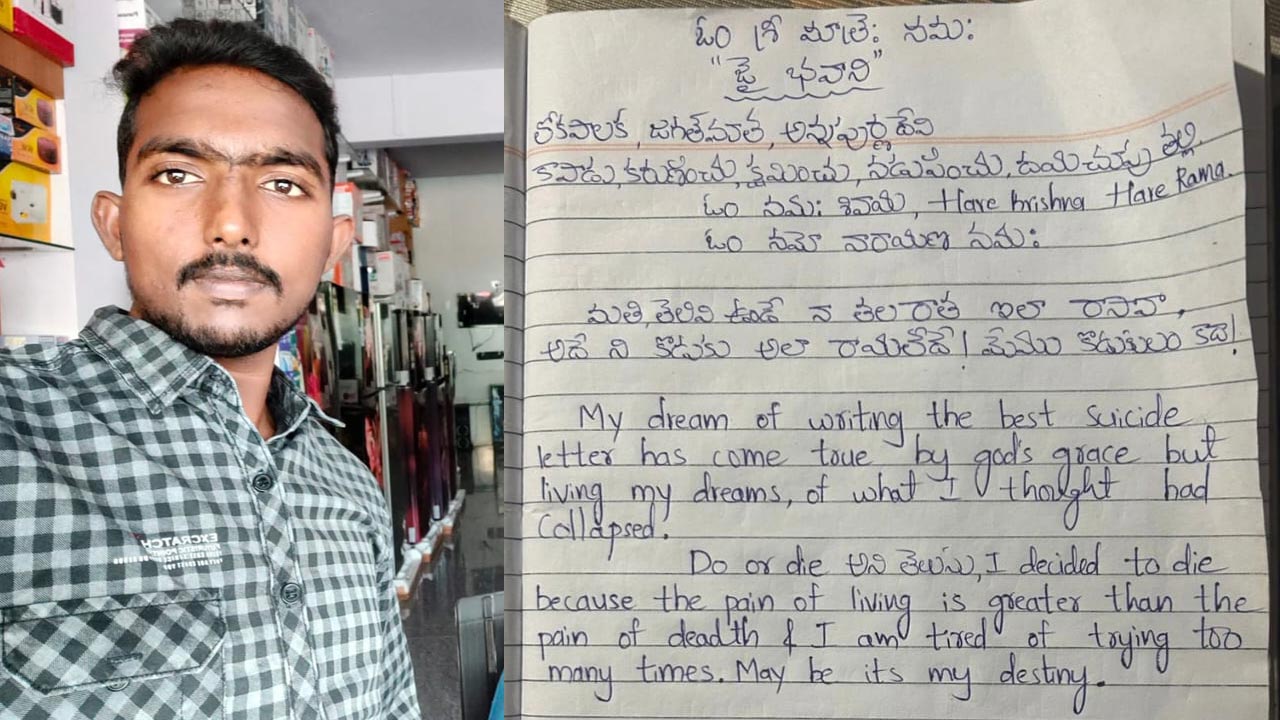 EXCRATCH
ఓం శ్రీ మాత్రే: నమ:
"జై భవాని"
లోకపాలక, జగత్‌మాత, అన్నపూర్ణ దేవి
కాపాడు, కరుణించు, క్షమించు, నడుపించు, దయచూపు తల్లి.
ఓం నమ: శివాయ, Hare krishna Hare Rama.
ఓం నమో నారాయణ నమ:
మతి, తెలివి ఉండే నా తల రాత ఇలా రాసావా,
అదే ని కొడుకు అలా రాయలేదే! మేము కొడుకులం కదా!
My dream of writing the best suicide
letter has come true by god's grace but
living my dreams, of what I thought had
collapsed.
Do or die అని తెలుసు, I decided to die
because the pain of living is greater than the
pain of deadth & I am tired of trying too
many times. May be its my destiny.